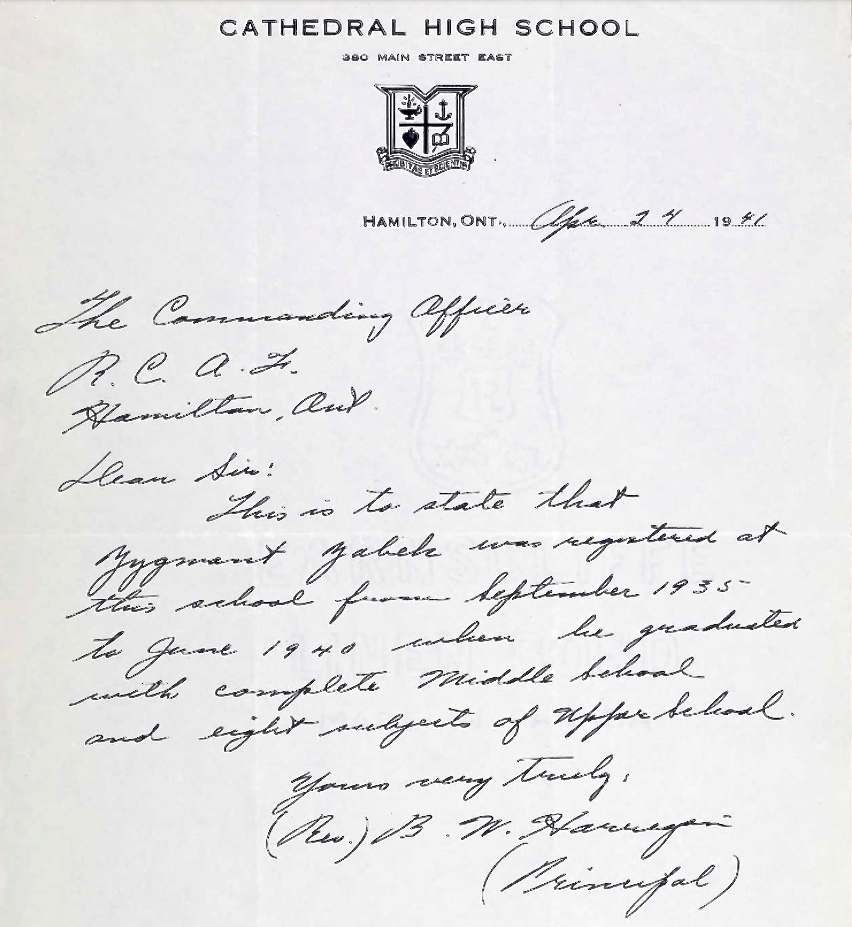 CATHEDRAL HIGH SCHOOL
380 MAIN STREET EAST
HAMILTON, ONT., Apr. 24 1941
The Commanding Officer
R. C. A. F.
Hamilton, Ont.
Dear Sir:
This is to state that
Zygmont Zabek was registered at
this school from September 1935
to June 1940 when he graduated
with complete Middle School
and eight subjects of Upper School.
Yours very truly,
(Rev.) B. W. Harrigan
(Principal)